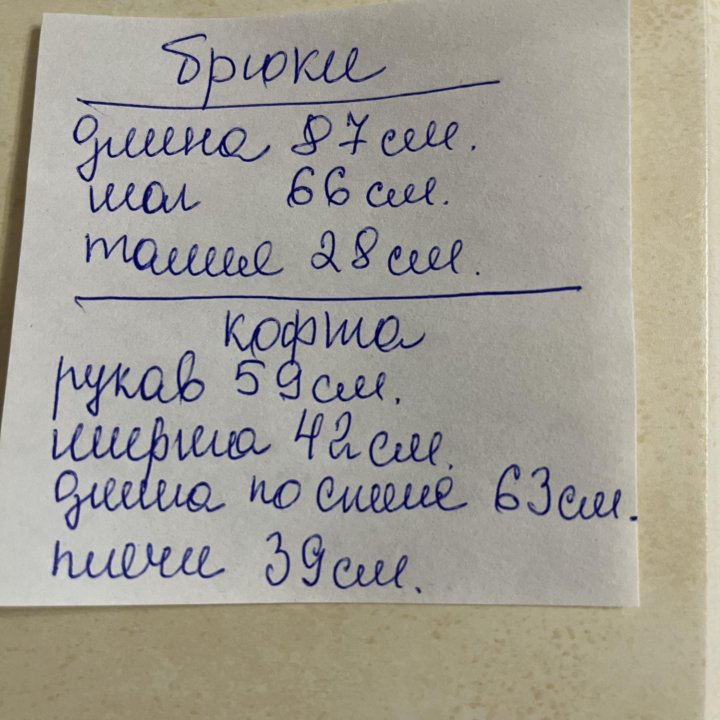 брюки
длина 87 см.
шаг 66 см.
талия 28 см.
кофта
рукав 59 см.
ширина 42 см.
длина по спине 63 см.
плечи 39 см.